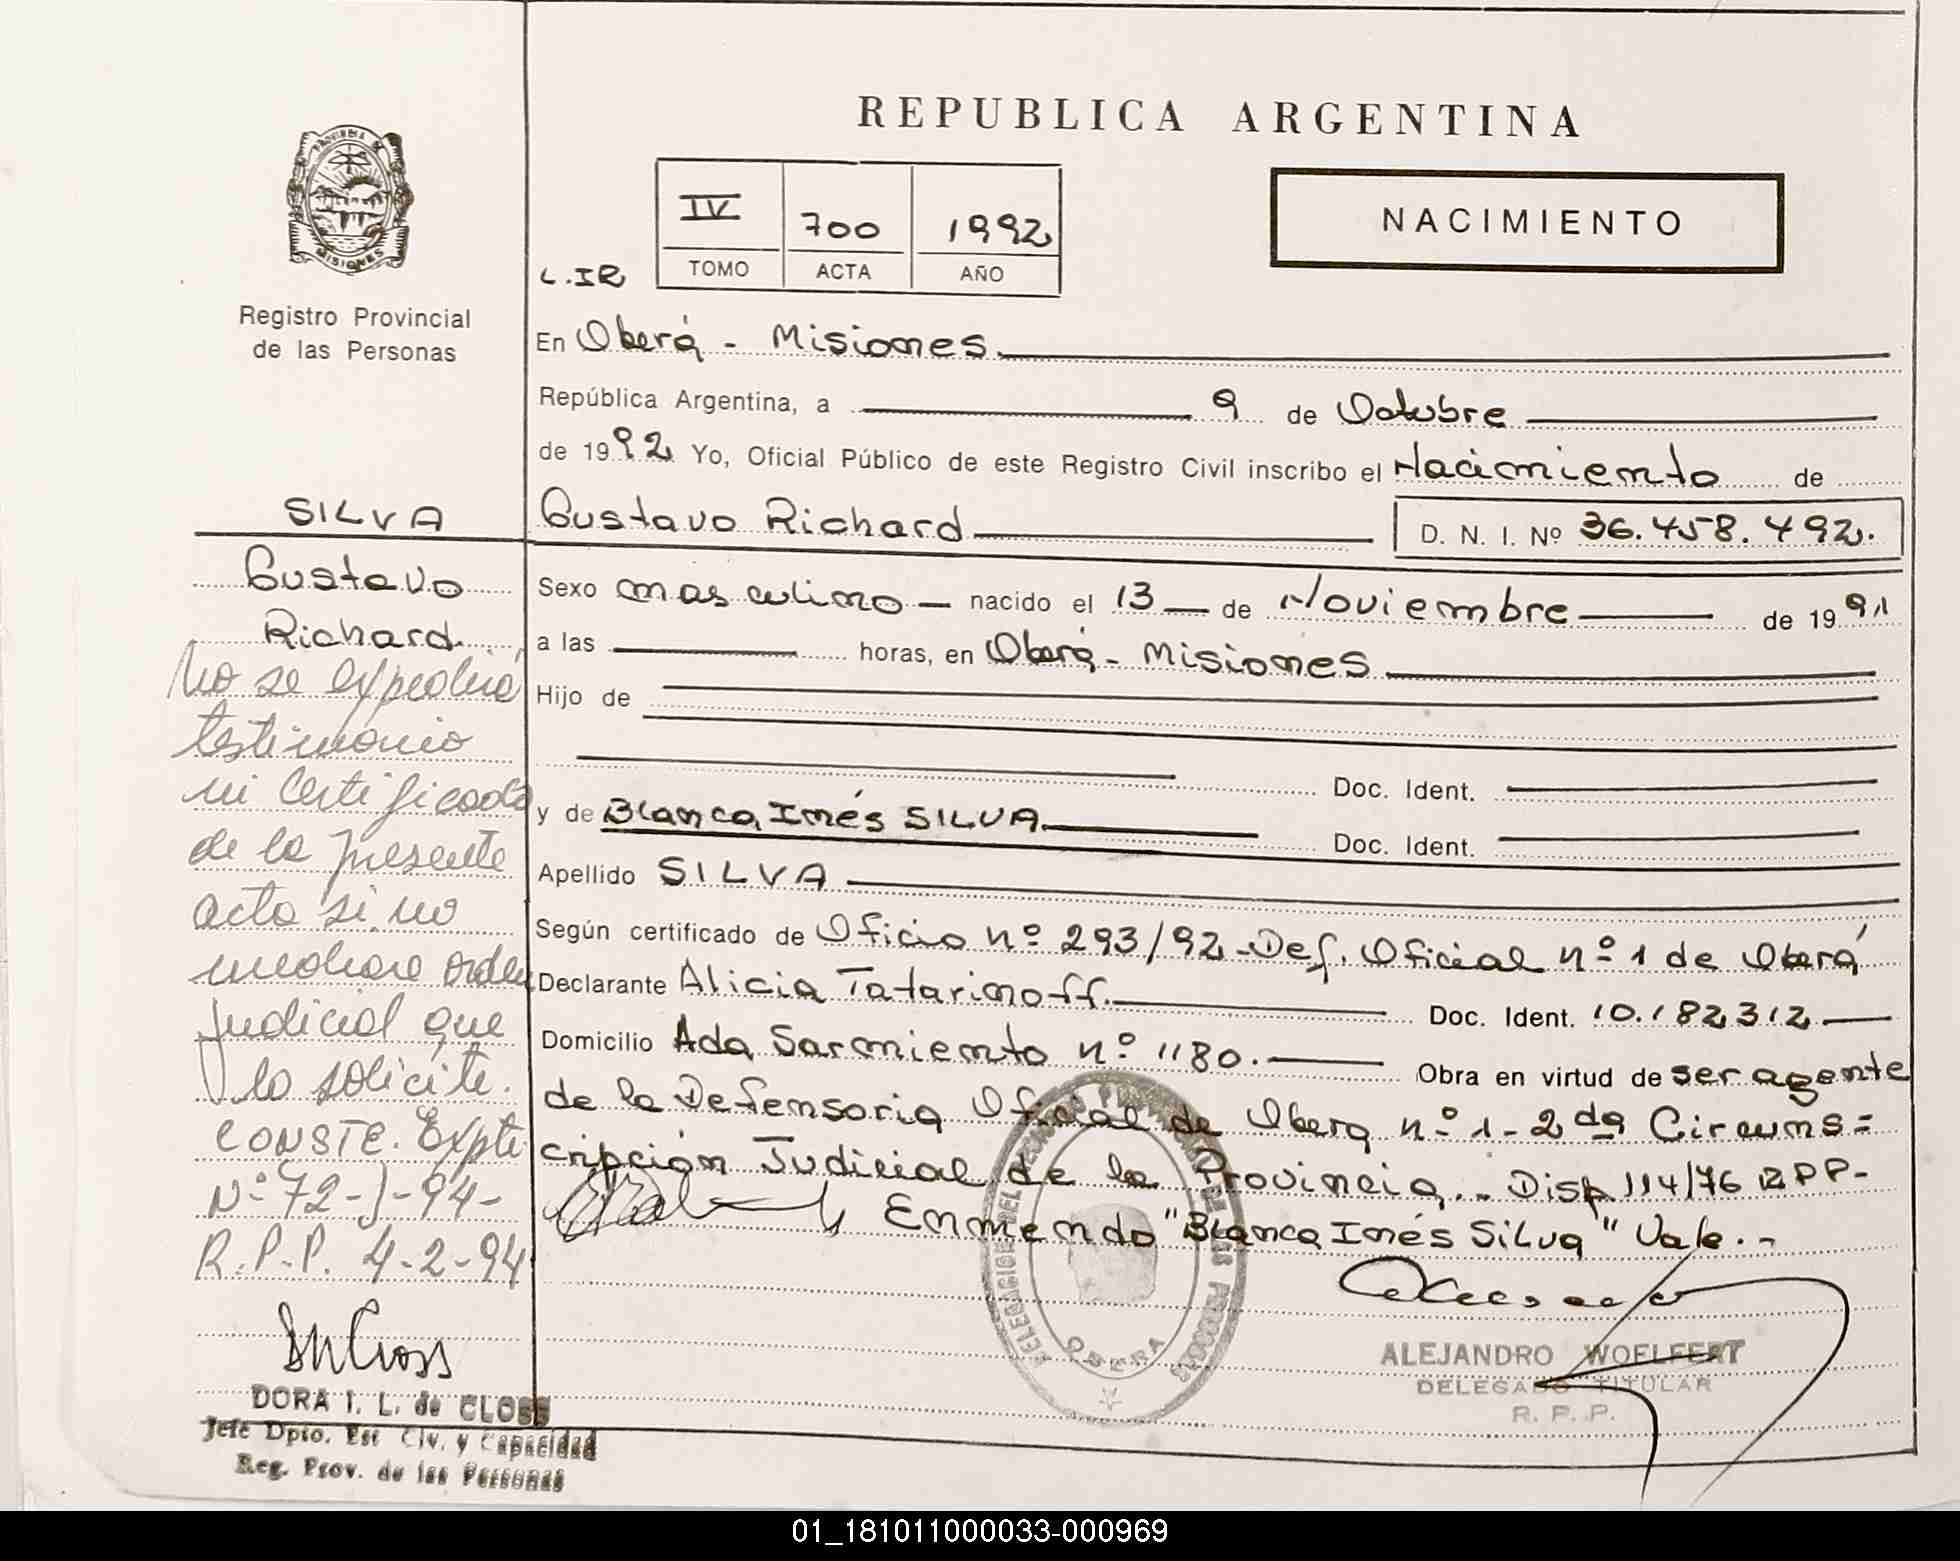 REPUBLICA ARGENTINA
PROVINCIA DE
MISIONES
Registro Provincial
de las Personas
IV 700 1992
TOMO ACTA AÑO
L.IR
NACIMIENTO
En Oberá - Misiones.
República Argentina, a 9 de Octubre
de 1992 Yo, Oficial Público de este Registro Civil inscribo el Nacimiento de
Gustavo Richard D. N. I. Nº 36.458.492.
Sexo masculino nacido el 13 de Noviembre de 1991
a las horas, en Oberá - Misiones
Hijo de
Doc. Ident.
y de Blanca Inés SILVA Doc. Ident.
Apellido SILVA
Según certificado de Oficio nº 293/92 - Def. Oficial nº 1 de Oberá
Declarante Alicia Tatarinoff. Doc. Ident. 10.182312
Domicilio Ada Sarmiento nº 1180. Obra en virtud de ser agente
de la Defensoria Oficial de Obera nº 1 - 2da Circuns=
cripción Judicial de la Provincia.. Disp. 114/76 RPP-
Enmendo "Blanca Inés Silva" Vale.-
SILVA
Gustavo
Richard
No se expedirá
testimonio
ni certificado
de la presente
acta si no
mediare orden
judicial que
lo solicite.
CONSTE. Expte
Nº 72-J-94-
R.P.P. 4-2-94
DORA I. L. de CLOSS
Jefe Dpto. Est Civ. y Capacidad
Reg. Prov. de las Personas
DELEGACION DEL REGISTRO PROVINCIAL DE LAS PERSONAS
OBERA
ALEJANDRO WOELFERT
DELEGADO TITULAR
R. P. P.
01_181011000033-000969